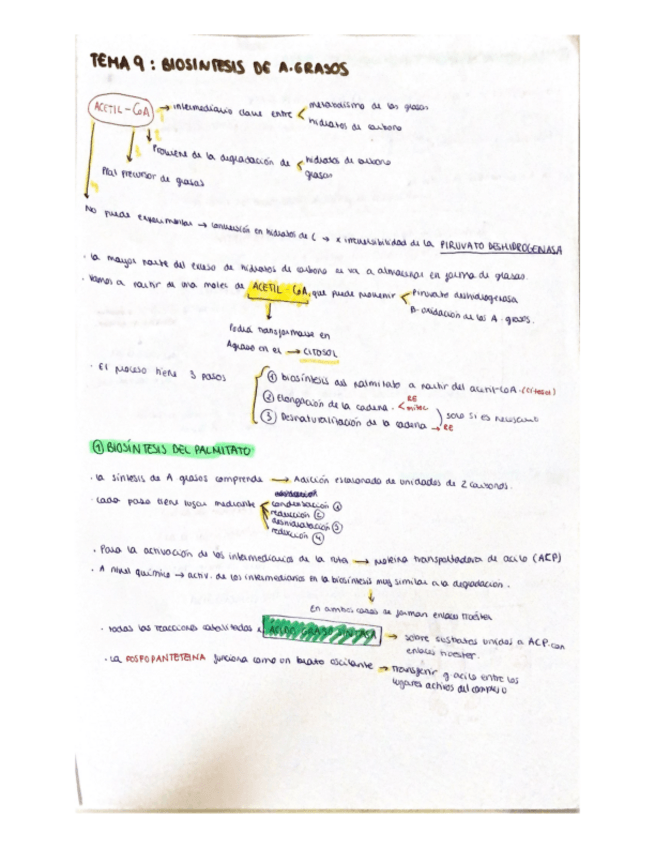 TEMA 9: BIOSINTESIS DE A.GRASOS
ACETIL-CoA → intermediario clave entre
metabolismo de las grasas
hidratos de carbono
Proviene de la degradación de
hidratos de carbono
grasas
Ppal precursor de grasas
No puede experimentar → conversión en hidratos de C → x irreversibilidad de la PIRUVATO DESHIDROGENASA
· la mayor parte del exceso de hidratos de carbono se va a almacenar en forma de grasas.
· Vamos a partir de una moles de ACETIL-CoA, que puede provenir
Piruvato deshidrogenasa
β-oxidación de los A.grasos.
Podrá transformarse en
A graso en el → CITOSOL
· El proceso tiene 3 pasos
① biosíntesis del palmitato a partir del acetil-CoA.(citosol)
② Elongación de la cadena.
RE
mitoc
③ Desnaturalización de la cadena → RE
solo si es necesario
① BIOSÍNTESIS DEL PALMITATO
· la síntesis de A grasos comprende → Adición escalonada de unidades de 2 carbonos.
· cada paso tiene lugar mediante
condensación ①
reducción ②
deshidratación ③
reducción ④
· Para la activación de los intermediarios de la ruta → proteína transportadora de acilo (ACP)
· A nivel químico → activ. de los intermediarios en la biosíntesis muy similar a la degradación.
En ambos casos se forman enlaces tioéster
· todas las reacciones catalizadas x ACIDO GRASO SINTASA → sobre sustratos unidos a ACP con
enlaces tioester.
· La FOSFOPANTETEINA funciona como un brazo oscilante → transferir g acilo entre los
lugares activos del complejo